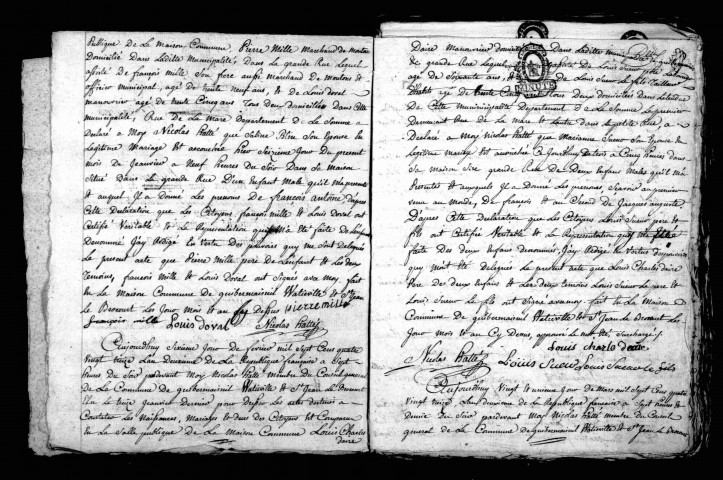 Publique De La Maison Commune, Pierre Mille Marchand de Mouton
Domicilié Dans Laditte Municipalité, Dans la grande Rue Lequel
assisté De françois Mille Son frere aussi Marchand de Moutons &
officier Municipal, agé de trente neuf ans, & de Louis Doval
manouvrier agé de trente Cinq ans Tous Deux domiciliées Dans Cette
municipalité, Rue De La Mare Departement de La Somme a
Déclaré a Moy Nicolas hatté que Son Epouse En
Légitime Mariage Est accouchée hier Seizieme Jour Du présent
mois De Janvier a Neuf heures Du Soir Dans Sa Maison
Située Dans La grande Rue D'un Enfant Male qu'il m'a présenté
& auquel Il a Donné Les prenoms De françois antoine D'apres
Cette Déclaration que Les Citoyens françois mille & Louis Doval ont
Certifié Véritable & La Représentation qui M'a Eté faitte De L'enfant
Denommé J'ay Rédigé En Vertu Des pouvoirs qui me Sont Delegués
Le présent acte que Pierre Mille pere de L'enfant & Les deux
temoins, francois Mille & Louis Doval ont Signés avec moy, fait
En La Maison Commune de guibermesnil Wativille & St Jean
Le Brocourt Les Jour Mois & an Dessus pierre mille
françois mille Louis doval Nicolas Hatté
Aujourd'huy Sixieme Jour De fevrier mil Sept Cens quatre
vingt treize Lan Deuxieme De La République française a Sept
heures Du Soir pardevant Moy Nicolas hatté membre Du Conseil general
De La Commune De guibermesnil Wativille & St Jean Le Brocourt
Elu Le treize Janvier Dernier pour Dresser Les actes destinés a
Constater Les Naissances, Mariages & deces des Citoyens Est Comparu
En La Salle publique De La Maison Commune Louis Charles
daire
Daire Manouvrier domicilié Dans Laditte municipalité
& grande Rue Lequel assisté De Louis Sueur
agé de Soixante ans, & De Louis Sueur Le fils
agé de trente ans Tous deux domiciliés Dans Letendue
De Cette Municipalité Departement de La Somme Le premier
Demeurant Rue De La Mare & Lautre Dans La petite Rue, a
Declaré a Moy Nicolas hatté que Marianne Sueur Son Epouse En
Légitime mariage Est accouchée Ce Jourd'huy a Cinq heures Dans
Sa maison Sise grande Rue De Deux Enfans Males qu'il M'a
Presentés & auxquels Il a Donné Les prenoms Sçavoir au premier
venu au monde, De françois & au Second de Jacques auguste,
D'apres Cette Déclaration que Les Citoyens Louis Sueur pere &
fils ont Certifié Véritable & La Représentation qui m'a Eté
faitte Des deux Enfans denommés, J'ay Rédigé En Vertu Des pouvoirs
qui m'ont Eté delegués Le présent acte que Louis Charles Daire
Pere des deux Enfans & Les deux temoins Louis Sueur Le pere &
Louis Sueur Le fils ont Signé avec moy fait En La Maison
Commune de guibermesnil Wativille & St Jean Le Brocourt Les
Jour mois & an Cy Dessus,
Louis charle daire
Nicolas Hatté
Louis Sueur Louis Sueur Le fils
Aujourd'huy Vingt & unieme Jour de Mars mil Sept Cens quatre
vingt treize Lan Deuxieme De La République française a Sept heures &
demie du Soir pardevant Moy Nicolas hatté membre Du Conseil
general de La Commune De guibermesnil Wativille & St Jean Le Brocourt